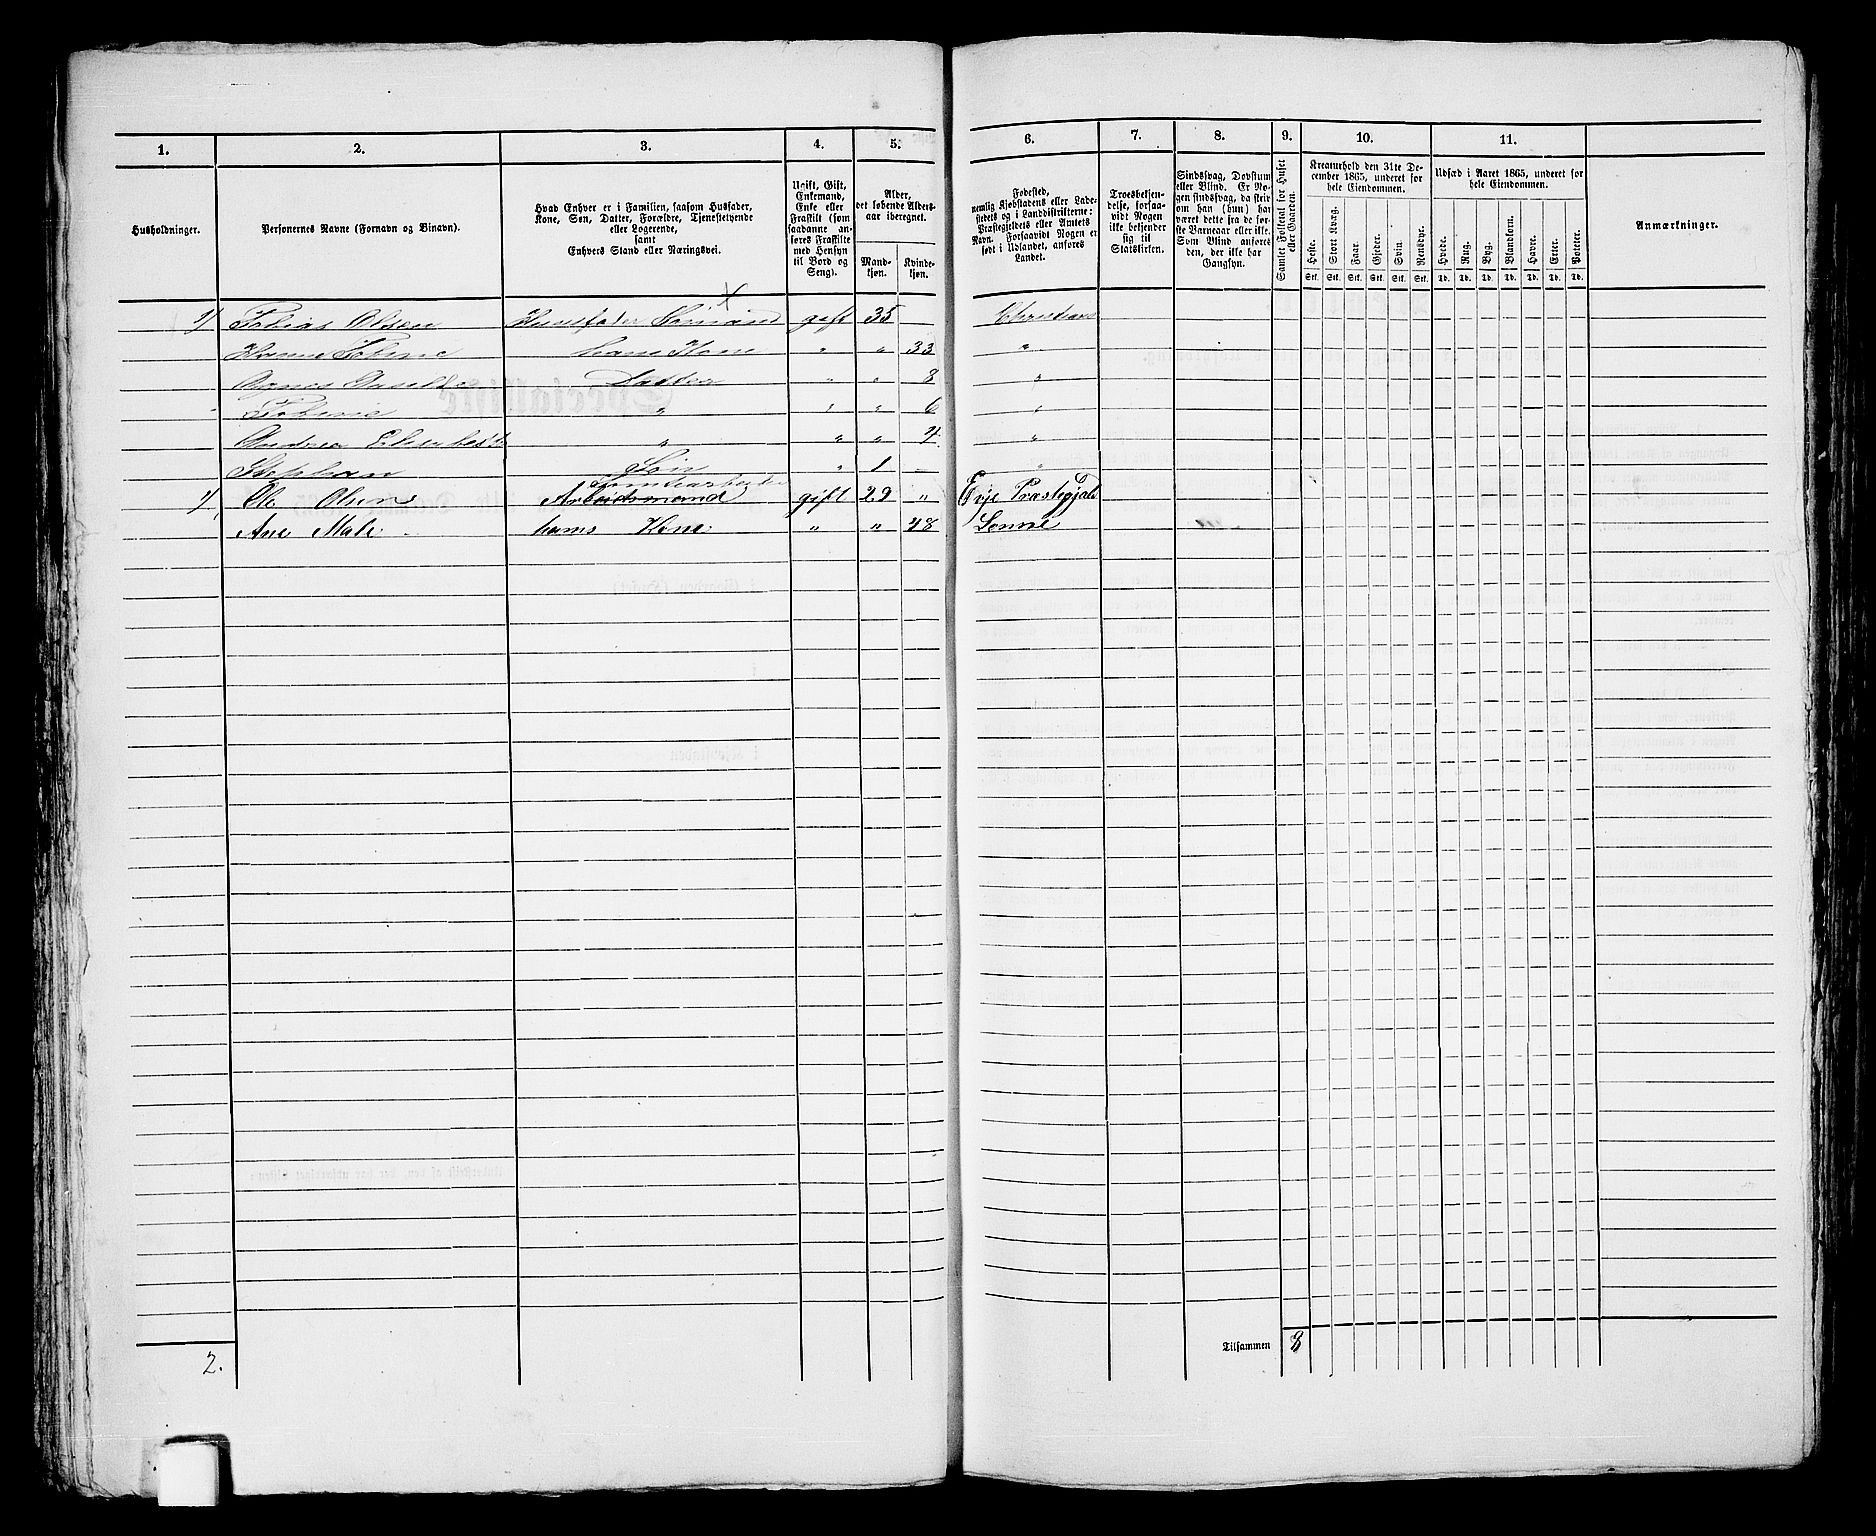 1. 2. 3. 4. 5. 6. 7. 8. 9. 10. 11.
Husholdninger.
Personernes Navne (Fornavn og Binavn).
Hvad Enhver er i Familien, saasom Husfader,
Kone, Søn, Datter, Forældre, Tjenestetyende
eller Logerende,
samt
Enhvers Stand eller Næringsvei.
Ugift, Gift,
Enkemand,
Enke eller
Fraskilt (som
saadanne an-
føres Fraskilte
med Hensyn
til Bord og
Seng).
Alder,
det løbende Alders-
aar iberegnet.
Mand-
kjøn.
Kvinde-
kjøn.
Fødested,
nemlig Kjøbstadens eller Lade-
stedets og i Landdistrikterne:
Præstegjeldets eller Amtets
Navn. Forsaavidt Nogen er
født i Udlandet, anføres
Landet.
Troesbekjen-
delse, forsaa-
vidt Nogen
ikke bekjender
sig til
Statskirken.
Sindssvag, Døvstum
eller Blind. Er No-
gen sindssvag, da skriv
om han (hun) har
været dette fra de før-
ste Barneaar eller ikke.
Som Blind anføres
den, der ikke har
Gangsyn.
Samlet Folketal for Huset
eller Gaarden.
Kreaturhold den 31te De-
cember 1865, underet for
hele Eiendommen.
Heste. Stort Kvæg. Faar. Gjeder. Svin. Rensdyr.
Stk. Stk. Stk. Stk. Stk. Stk.
Udsæd i Aaret 1865, underet for
hele Eiendommen.
Hvede. Rug. Byg. Blandkorn. Havre. Erter. Poteter.
Td. Td. Td. Td. Td. Td. Td.
Anmærkninger.
1/ Tobias Olsen Huusfader Sømand gift 35 Christians
Tobine hans Kone " " 33 "
Datter " " 8 "
Tobine " " " 6 "
Andrea " " " 4 "
Stephan Søn " 1 "
1/ Ole Olsen Arbeidsmand gift 29 " Evje Præstegjæld
Ane Male hans Kone " " 48
2.
Tilsammen 8